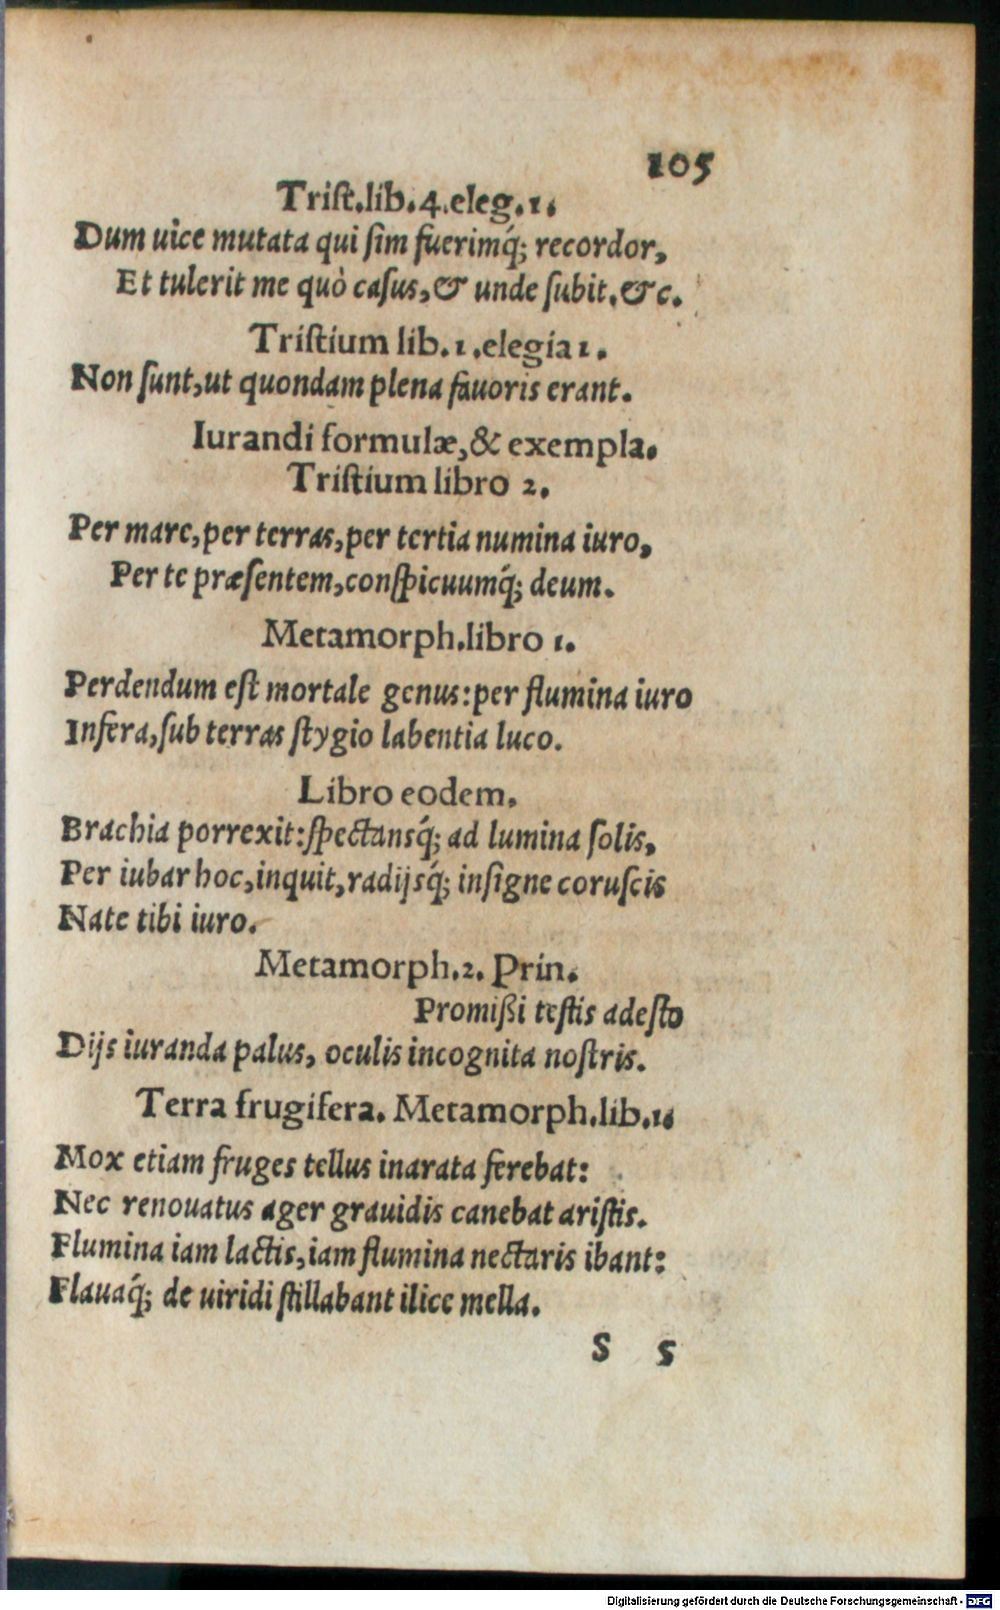 105
Trist.lib.4.eleg.1.
Dum uice mutata qui sim fuerimq́; recordor,
Et tulerit me quò casus,& unde subit.&c.
Tristium lib.1.elegia 1.
Non sunt,ut quondam plena fauoris erant.
Iurandi formulæ,& exempla.
Tristium libro 2.
Per mare,per terras,per tertia numina iuro,
Per te præsentem,conspicuumq́; deum.
Metamorph.libro 1.
Perdendum est mortale genus:per flumina iuro
Infera,sub terras stygio labentia luco.
Libro eodem.
Brachia porrexit:spectansq́; ad lumina solis,
Per iubar hoc,inquit,radijsq́; insigne coruscis
Nate tibi iuro.
Metamorph.2. Prin.
Promißi testis adesto
Dijs iuranda palus, oculis incognita nostris.
Terra frugifera. Metamorph.lib.1.
Mox etiam fruges tellus inarata ferebat:
Nec renouatus ager grauidis canebat aristis.
Flumina iam lactis,iam flumina nectaris ibant:
Flauaq́; de uiridi stillabant ilice mella.
S 5
Digitalisierung gefördert durch die Deutsche Forschungsgemeinschaft - DFG